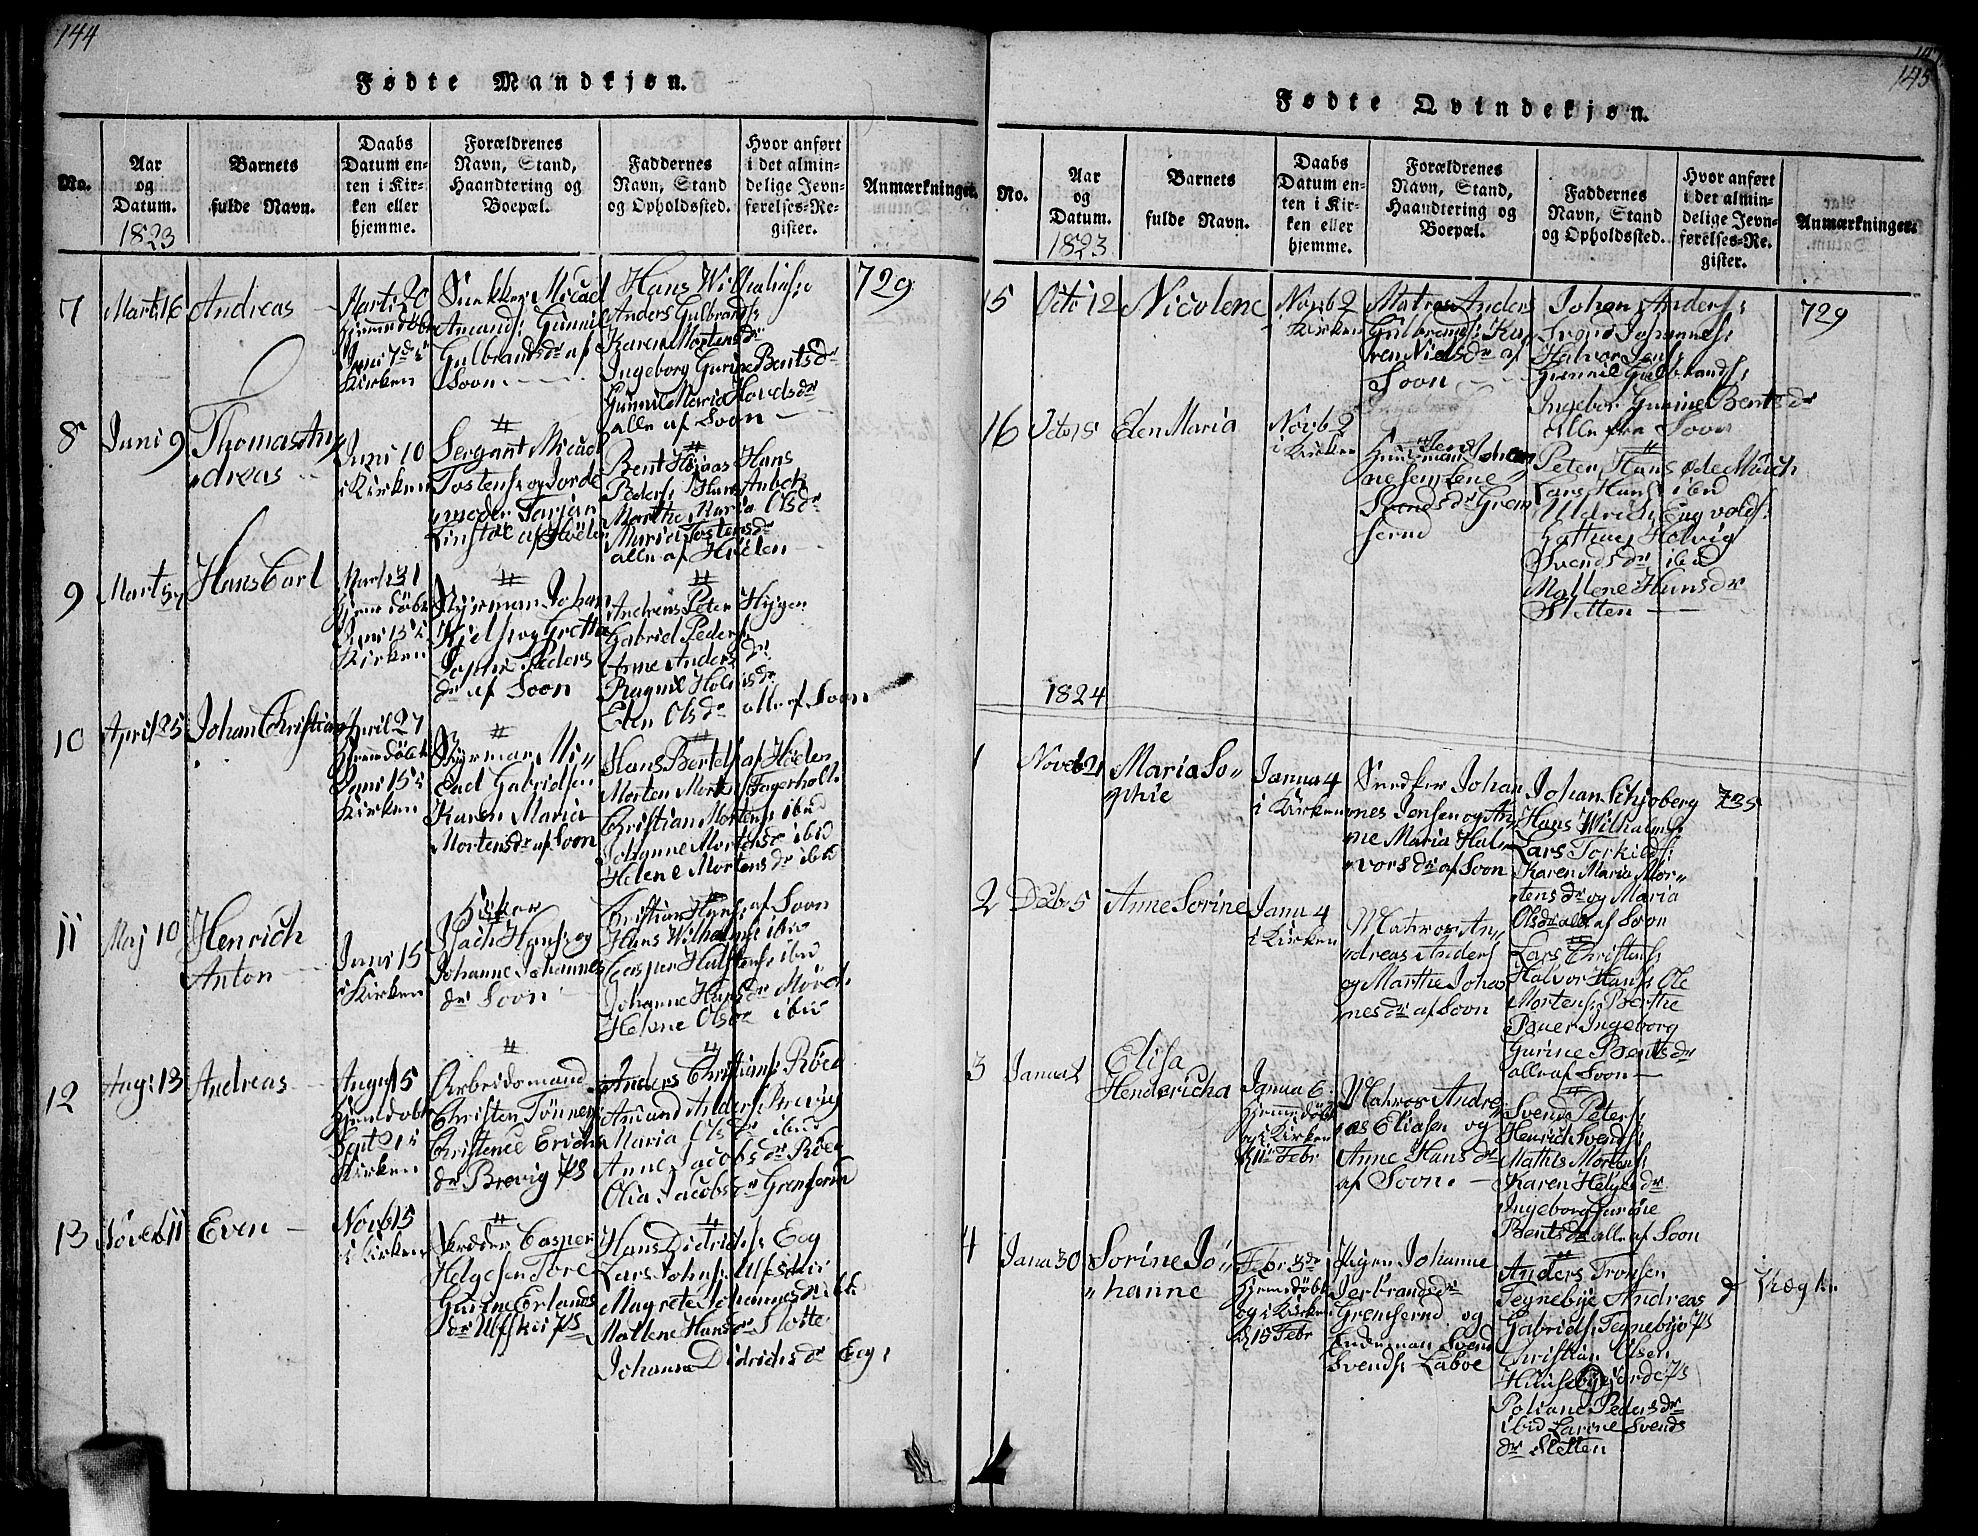 144
Fødte Mandkjøn.
No.
Aar
og
Datum.
1823
Barnets
fulde Navn.
Daabs
Datum en-
ten i Kir-
ken eller
hjemme.
Forældrenes
Navn, Stand,
Haandtering og
Boepæl.
Faddernes
Navn, Stand
og Opholdssted.
Hvor anført
i det almin-
delige Jevn-
førelses-Re-
gister.
Anmærkninger.
7
Marti 16
Andreas
Marti 20
hjemdøbt
Juni 7de i
Kirken
Snekker Micael
Amands: Gunnil
Gulbrandsdr af
Soon.
Hans Wilhalms:
Anders Gulbrands:
Karen Mortensdr
Ingeborg Gurine Bentsdr
Gunnil Maria Hovelsdr
alle af Soon
729
8
Juni 9
Thomas An
dreas
Juni 10
i Kirken
Sergant Micael
Tostens: og Jorde
moder Tarjan
Linstöe af Hölen
Bent Höjaas Hans
Peders: Hans Anbek
Marthe Maria Olsdr
Maria Tostensdr
alle af Hölen
9
Mart 5
Hans Carl
Marti 31
hjemdøbt
Juni 15 i
Kirken
Styrman Johan
Kjels: og Grethe
Sophie Peders
dr af Soon
Andreas Peter Hygen
Gabriel Peders:
Anne Andersdr
Ragnil Holmsdr
Elen Olsdr alle af Soon
10
April 25
Johan Christian
April 27
hjemdöbt
Juni 15 i
Kirken
Styrman Mi"
cael Gabrielsen
Karen Maria
Mortensdr af Soon
Hans Bertels: af Hölen
Morten Mort: Fagerholt
Christian Mortens: ibid
Johanne Mortensdr ibid
Helene Mortensdr ibid
11
Maj 10
Henrich
Anton
Juni 15
i Kirken
Fisker
Isach Hans: og
Johanne Johannes
dr Soon
Christian Hans: af Soon
Hans Wilhalms: ibid
Casper Halstens: ibid
Johanne Hansdr
Helene Olsdr ibid
12
Aug: 13
Andreas
Augu 15
hjemdøbt
Sept 21 i
Kirken
Arbeidsmand
Christen Tönnes:
Christence Erichs
dr Brevig Ps
Anders Christians: Röed
Amund Anders: Brevig
Maria Olsdr ibid
Anne Jacobsdr Röed
Olia Jacobsdr Grenserud
13
Noveb 11
Even
Novb 15
i Kirken
Skrædder Casper
Helgesen Tore
Gurine Erlands
dr Ulfskii Ps
Hans Didrichs: Eeg
Lars Johns: Ulfskii
Magrete Johannesdr ibid
Mallene Hansdr Slotte
Johanna Didrichsdr Eeg:
145
Fødte Qvindekjøn.
No.
Aar
og
Datum.
1823
Barnets
fulde Navn.
Daabs
Datum en-
ten i Kir-
ken eller
hjemme.
Forældrenes
Navn, Stand,
Haandtering og
Boepæl.
Faddernes
Navn, Stand
og Opholdssted.
Hvor anført
i det almin-
delige Jevn-
førelses-Re-
gister.
Anmærkninger.
15
Octo 12
Nicolene
Novb 2
i Kirken
Matros Anders
Gulbrands: Ka
ren Nielsdr af
Soon
Johan Anders:
Sivert Johannes:
Halvor Jens:
Gunnil Gulbrands:
Ingebor Gurine Bentsdr
alle fra Soon
729
16
Octo 15
Elen Maria
Novb 2
i Kirken
Huusmand Johan
nesen Lene
Svendsdr Gren
serud
Peter Hans:
Lars Hans: ibid
Uldrich Engvolds:
Cathrine Helvig
Svendsdr ibid
Mallene Hansdr
Sletten
1824
1
Noveb 21
Maria So"
phie
Janua 4
i Kirken
Snedker Johan
nes Jensen og An
ne Maria Hal
vorsdr af Soon
Johan Schjøberg
Hans Wilhalms:
Lars Torkilds:
Karen Maria Mor"
tensdr og Maria
Olsdr alle af Soon
735
2
Deceb 5
Anne Sorine
Janu 4
i Kirken
Matros An"
dreas Anders
og Marthe Johan
nesdr af Soon
Lars Christens:
Halvor Hans: Ole
Mortens: Berthe
Bauer Ingeborg
Gurine Bentsdr
alle af Soon
3
Janua 2
Elisa
Hendericha
Janua 6
hjemdöbt
og i Kirken
d 11te Febr
Matros Andre
as Eliasen og
Anne Hansdr
af Soon.
Svend Peters:
Henrich Svends:
Mathis Mortens:
Karen Helgesdr
Ingeborg Gurine
Bentsdr alle af Soon
4
Janua 30
Sorine Jo"
hanne
Febr 3de
hjemdöbt
og i Kirken
d 15 Febr
Pigen Johanne
Jerbrandsdr
Grenserud og
Enkemand Svend
Svends: Laboe
Anders Tronsen
Tegnebye Andreas
Gabriels: Tegnebye Ps
Christian Olsen
Huusebye jorde Ps
Poliane Pedersdr
ibid Larine Svends
dr Sletten